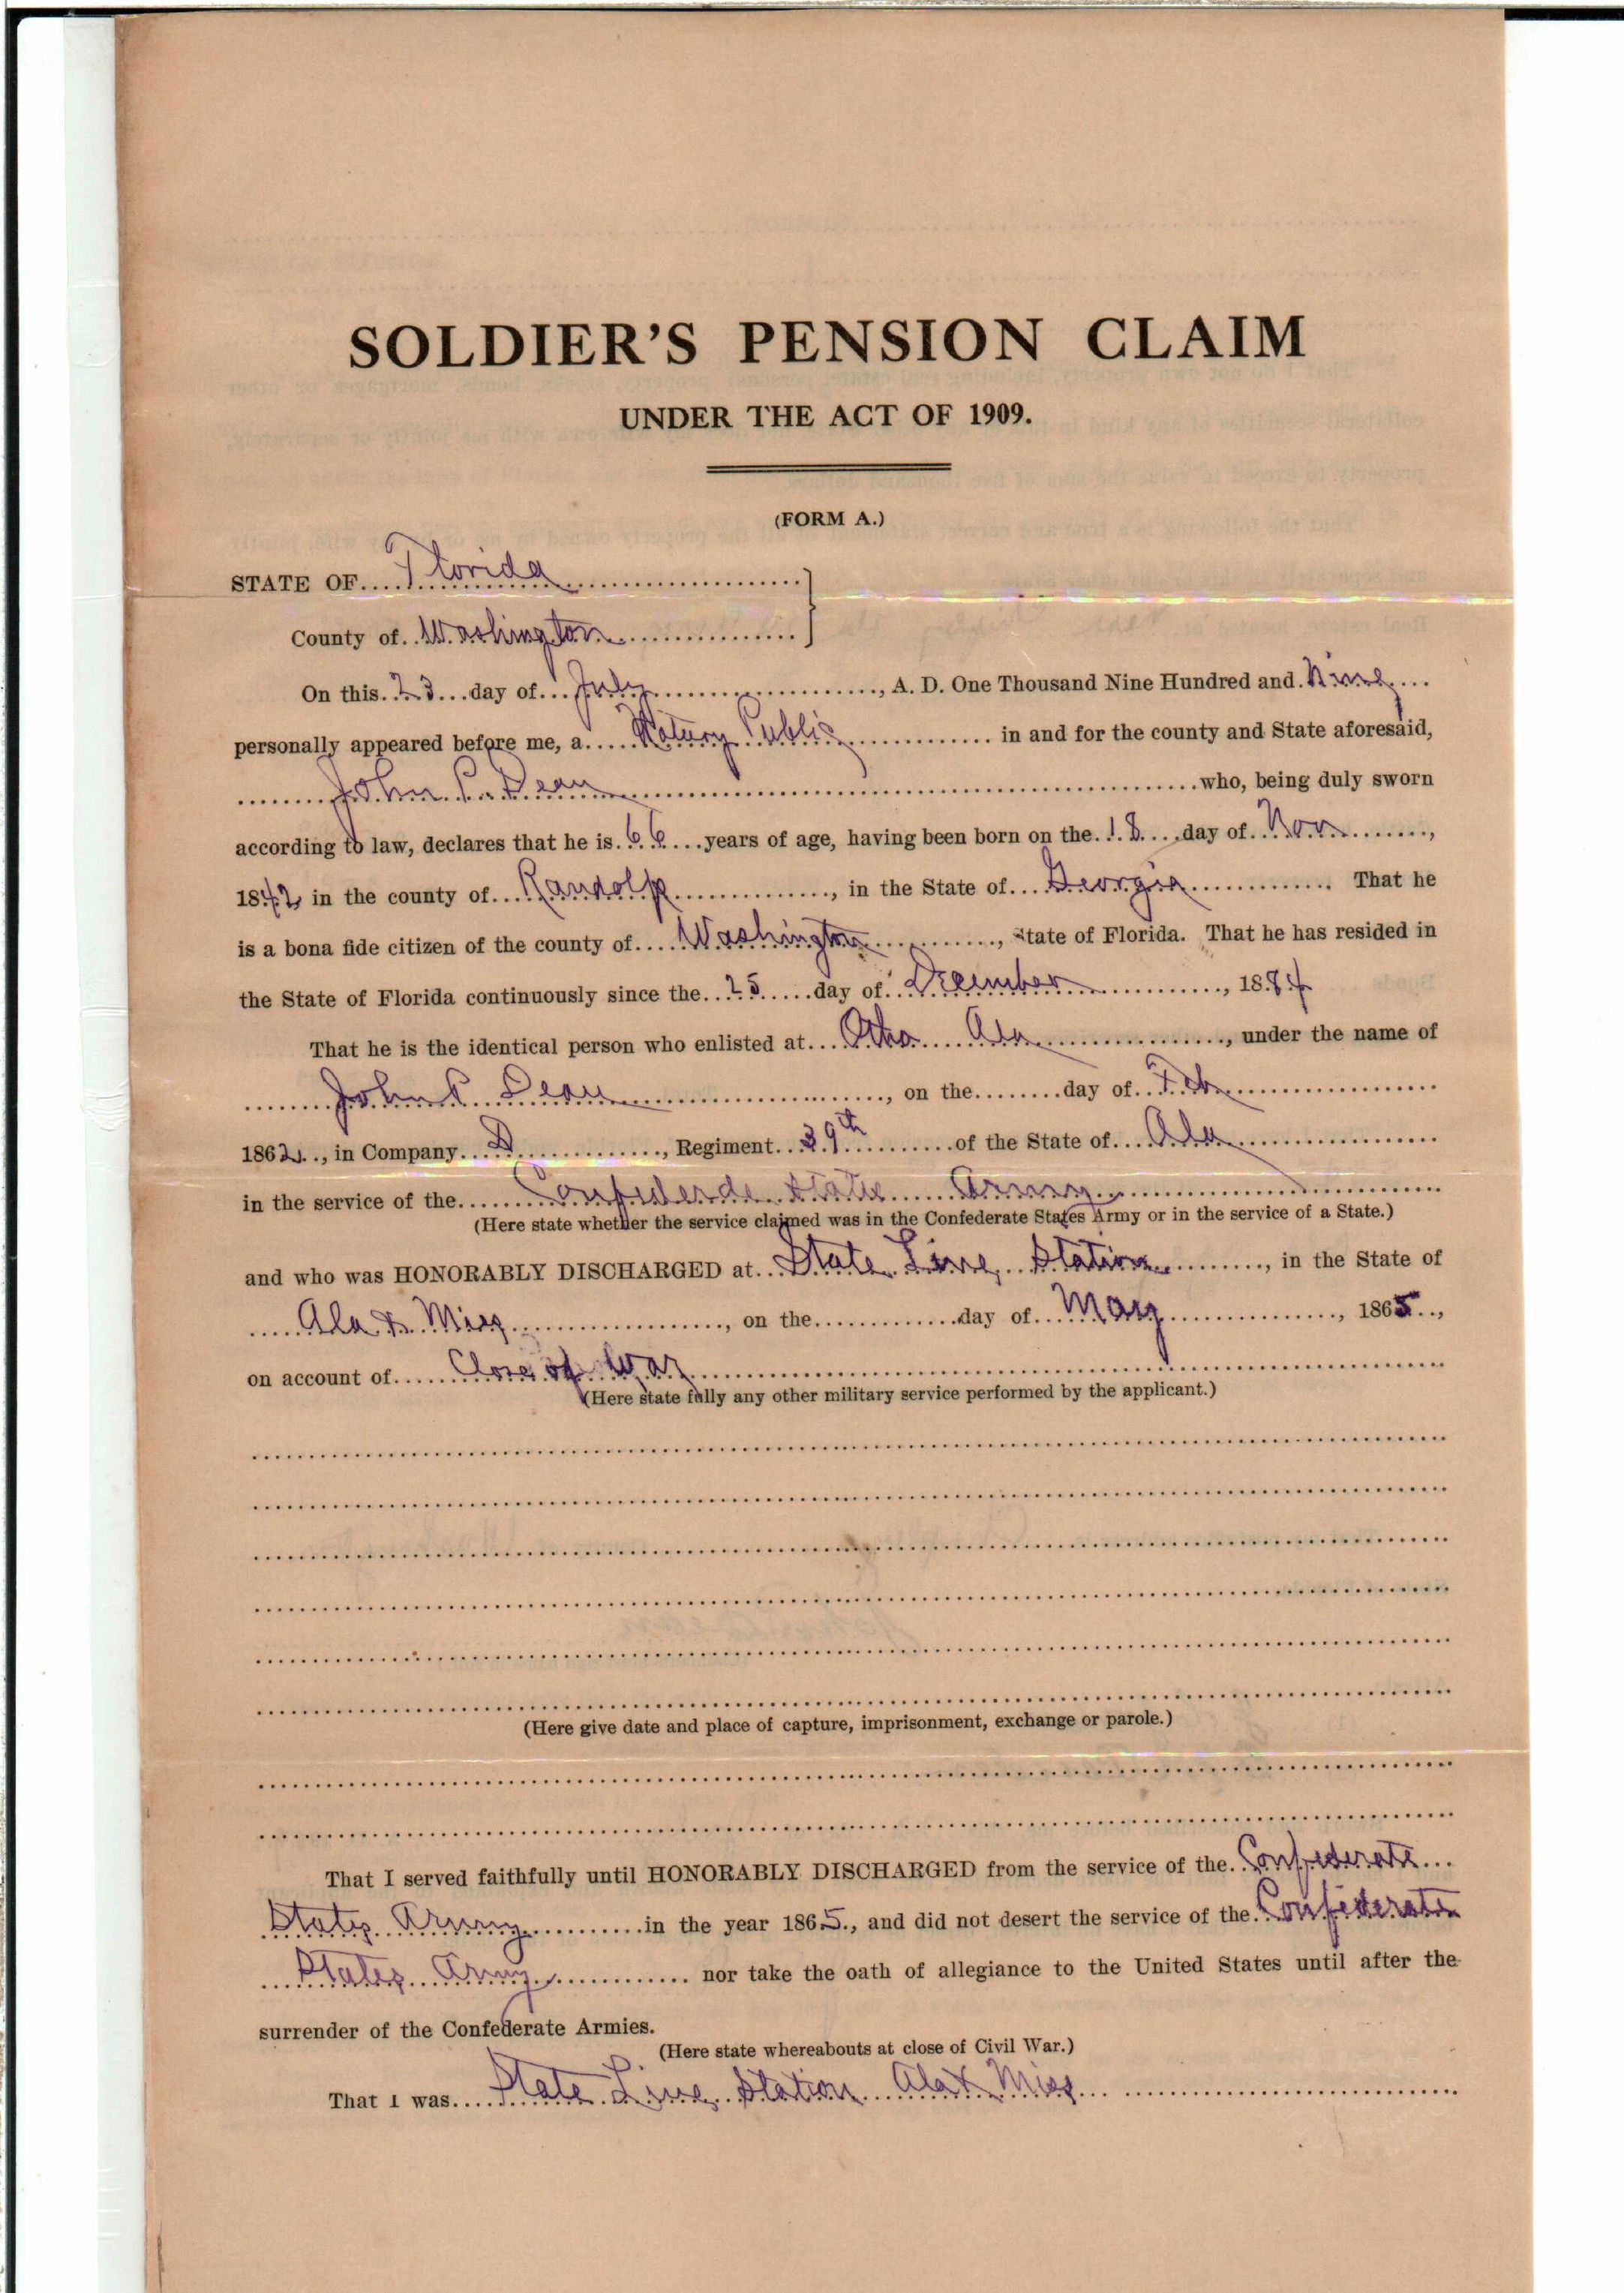 SOLDIER'S PENSION CLAIM
UNDER THE ACT OF 1909.
(FORM A.)
STATE OF.... Florida
County of.. Washington
On this. 23 ...day of... July ..., A. D. One Thousand Nine Hundred and. Nine
personally appeared before me, a..... Notary Public ... in and for the county and State aforesaid,
John P. Dean ... who, being duly sworn
according to law, declares that he is. 66 ...years of age, having been born on the. 18 ...day of.. Nov ...,
1842 in the county of.... Randolph ..., in the State of.... Georgia .... That he
is a bona fide citizen of the county of.... Washington ..., State of Florida. That he has resided in
the State of Florida continuously since the.. 25 .....day of. December ..., 1884
That he is the identical person who enlisted at... Otho Ala ..., under the name of
John P. Dean ..., on the.........day of.. Feb
1862.., in Company.... D ..., Regiment... 39th ...of the State of.... Ala
in the service of the...... Confederate State Army
(Here state whether the service claimed was in the Confederate States Army or in the service of a State.)
and who was HONORABLY DISCHARGED at.. State Line Station ..., in the State of
Ala & Miss ..., on the..............day of... May ..., 1865..,
on account of...... Close of War
(Here state fully any other military service performed by the applicant.)
(Here give date and place of capture, imprisonment, exchange or parole.)
That I served faithfully until HONORABLY DISCHARGED from the service of the. Confederate...
States Army ...in the year 1865., and did not desert the service of the. Confederate
States Army ... nor take the oath of allegiance to the United States until after the
surrender of the Confederate Armies.
(Here state whereabouts at close of Civil War.)
That I was.... State Line Station Ala & Miss